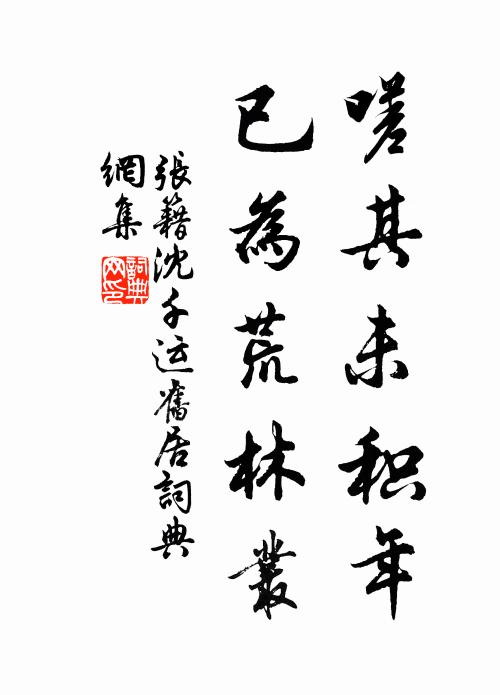 嗟其未积年
已為荒林叢
張籍沈千运舊居詞典
網集
詞典
网印